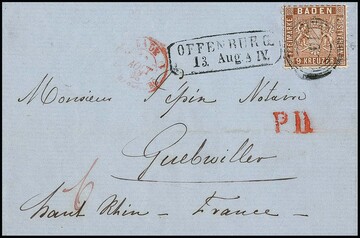 BADEN
FREIMARKE
9 KREUZER
OFFENBURG
13. Aug A IV.
Monsieur Pépin Notaire
P.D.
Guebwiller
haut Rhin - France -